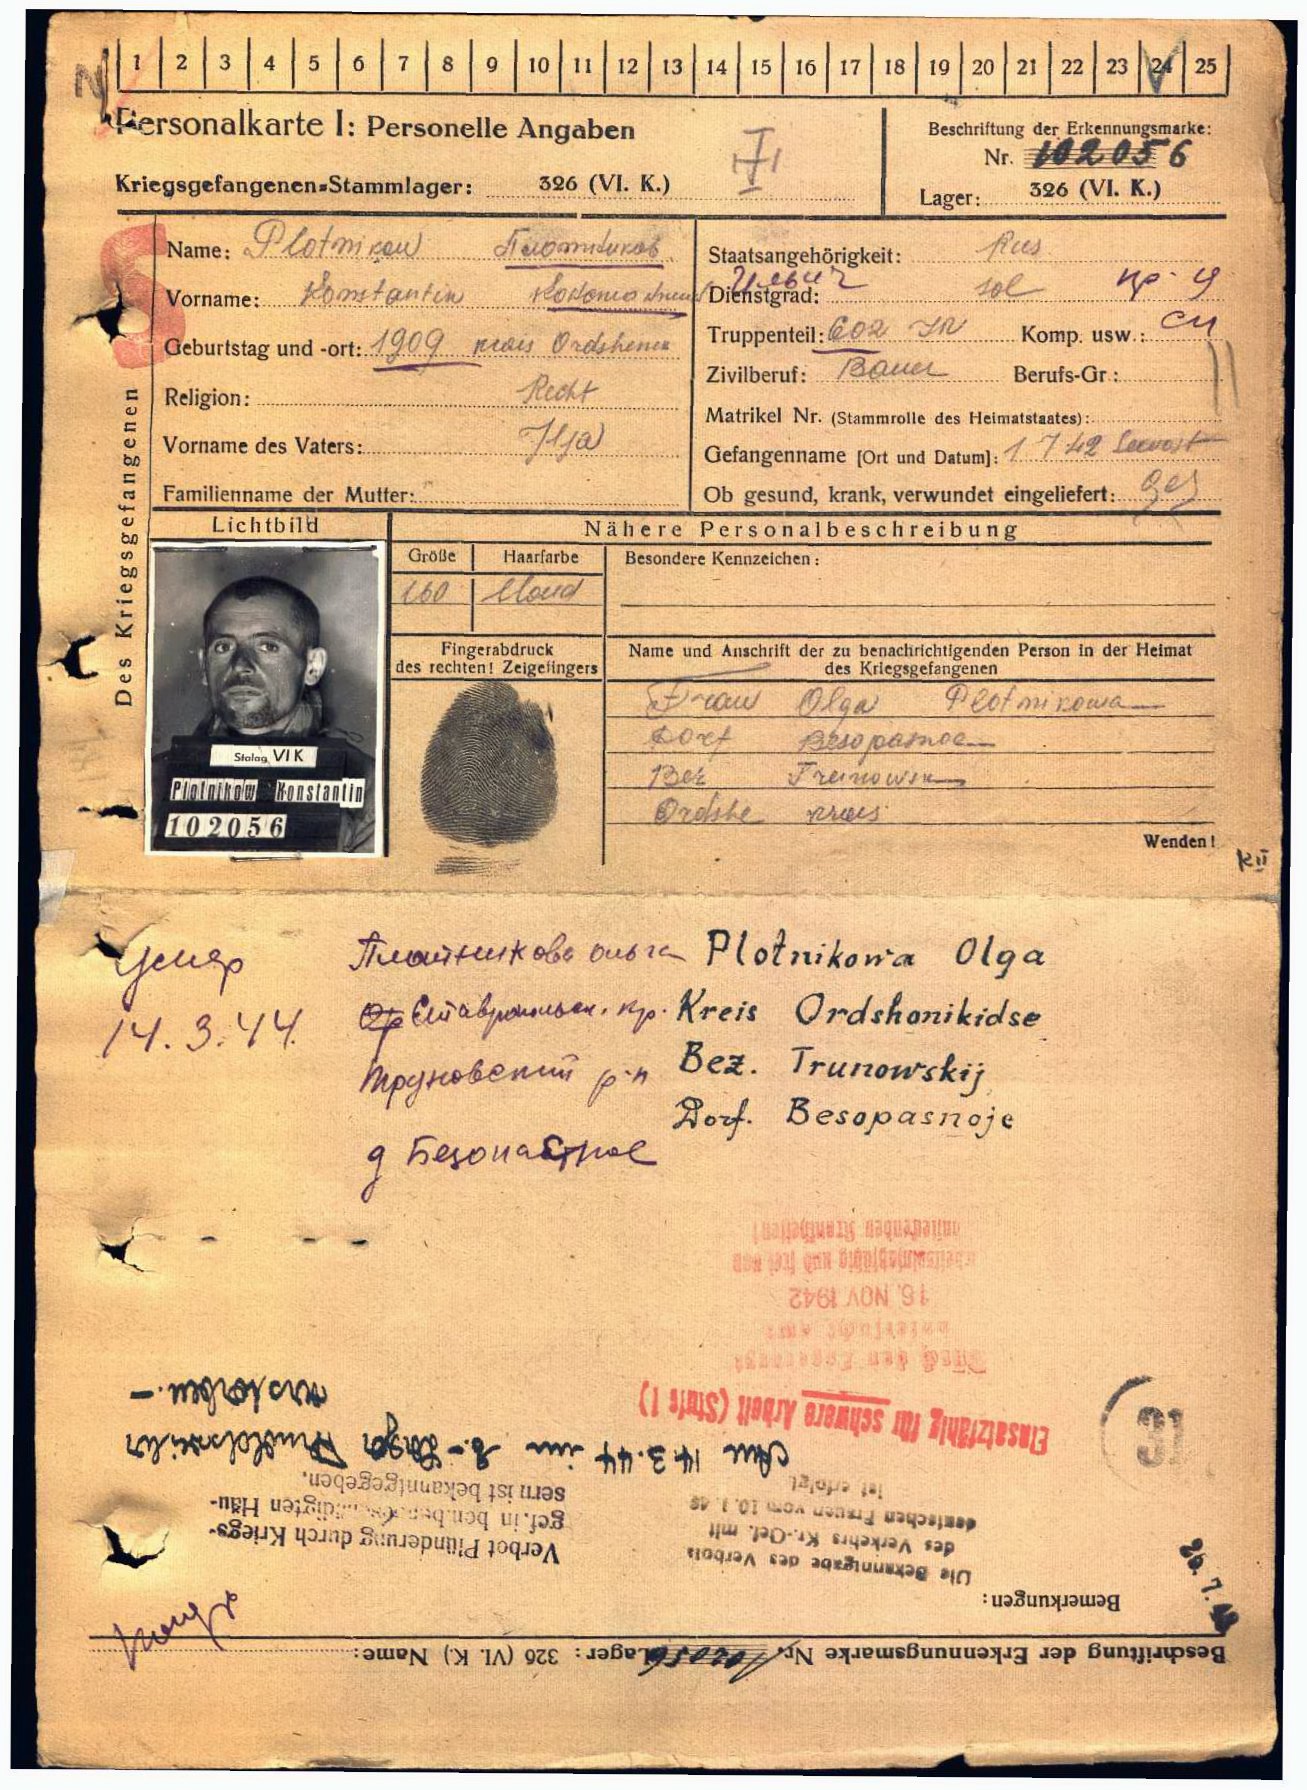 1 2 3 4 5 6 7 8 9 10 11 12 13 14 15 16 17 18 19 20 21 22 23 24 25
Personalkarte I: Personelle Angaben
Kriegsgefangenen-Stammlager: 326 (VI. K.)
Beschriftung der Erkennungsmarke:
Nr. 102056
Lager: 326 (VI. K.)
Des Kriegsgefangenen
Name: Plotnikow Плотников
Vorname: Konstantin
Geburtstag und -ort: 1909 kreis
Religion: Recht
Vorname des Vaters: Ilja
Familienname der Mutter:
Staatsangehörigkeit: Rus
Ильич
Dienstgrad: sol
Truppenteil: 602 IR Komp. usw.:
Zivilberuf: Bauer Berufs-Gr.:
Matrikel Nr. (Stammrolle des Heimatstaates):
Gefangenname [Ort und Datum]: 1 7 42
Ob gesund, krank, verwundet eingeliefert: ges
Lichtbild
Nähere Personalbeschreibung
Größe Haarfarbe Besondere Kennzeichen:
160 blond
Fingerabdruck
des rechten! Zeigefingers
Name und Anschrift der zu benachrichtigenden Person in der Heimat
des Kriegsgefangenen
Frau Olga Plotnikowa
Dorf Besopasnoe
Bez
Ordshe kreis
Wenden!
Stalag VI K
Plotnikow Konstantin
102056
K II
Умер
14.3.44.
Plotnikowa Olga
Kreis Ordshonikidse
Bez. Trunowskij
Dorf. Besopasnoje
ольга
Ставропольск. кр.
Труновский р-н
д
16. NOV 1942
Einsatzfähig für schwere Arbeit (Stufe I)
31
Am 14.3.44 im
verstorben.-
Verbot Plünderung durch Kriegs-
gef. in den
Häu-
sern ist bekanntgegeben.
Die Bekanntgabe des Verbots
des Verkehrs Kr.-Gef. mit
deutschen Frauen vom 10.1.
ist erfolgt.
Bemerkungen:
Beschriftung der Erkennungsmarke Nr. 102056 Lager: 326 (VI. K.) Name: